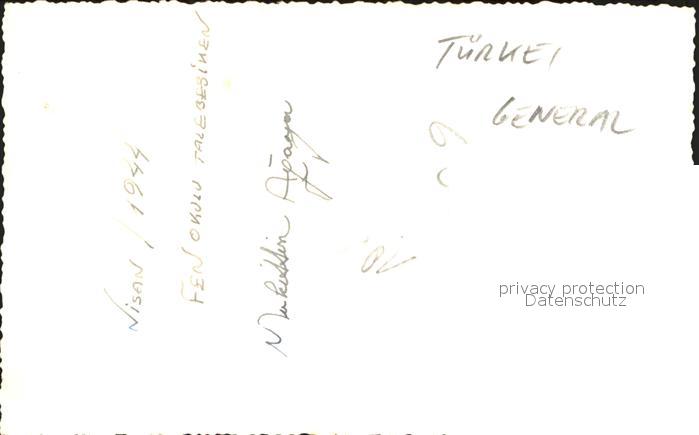 TÜRKEI
GENERAL
Nisan / 1944
FEN OKULU TALEBESİKEN
privacy protection
Datenschutz